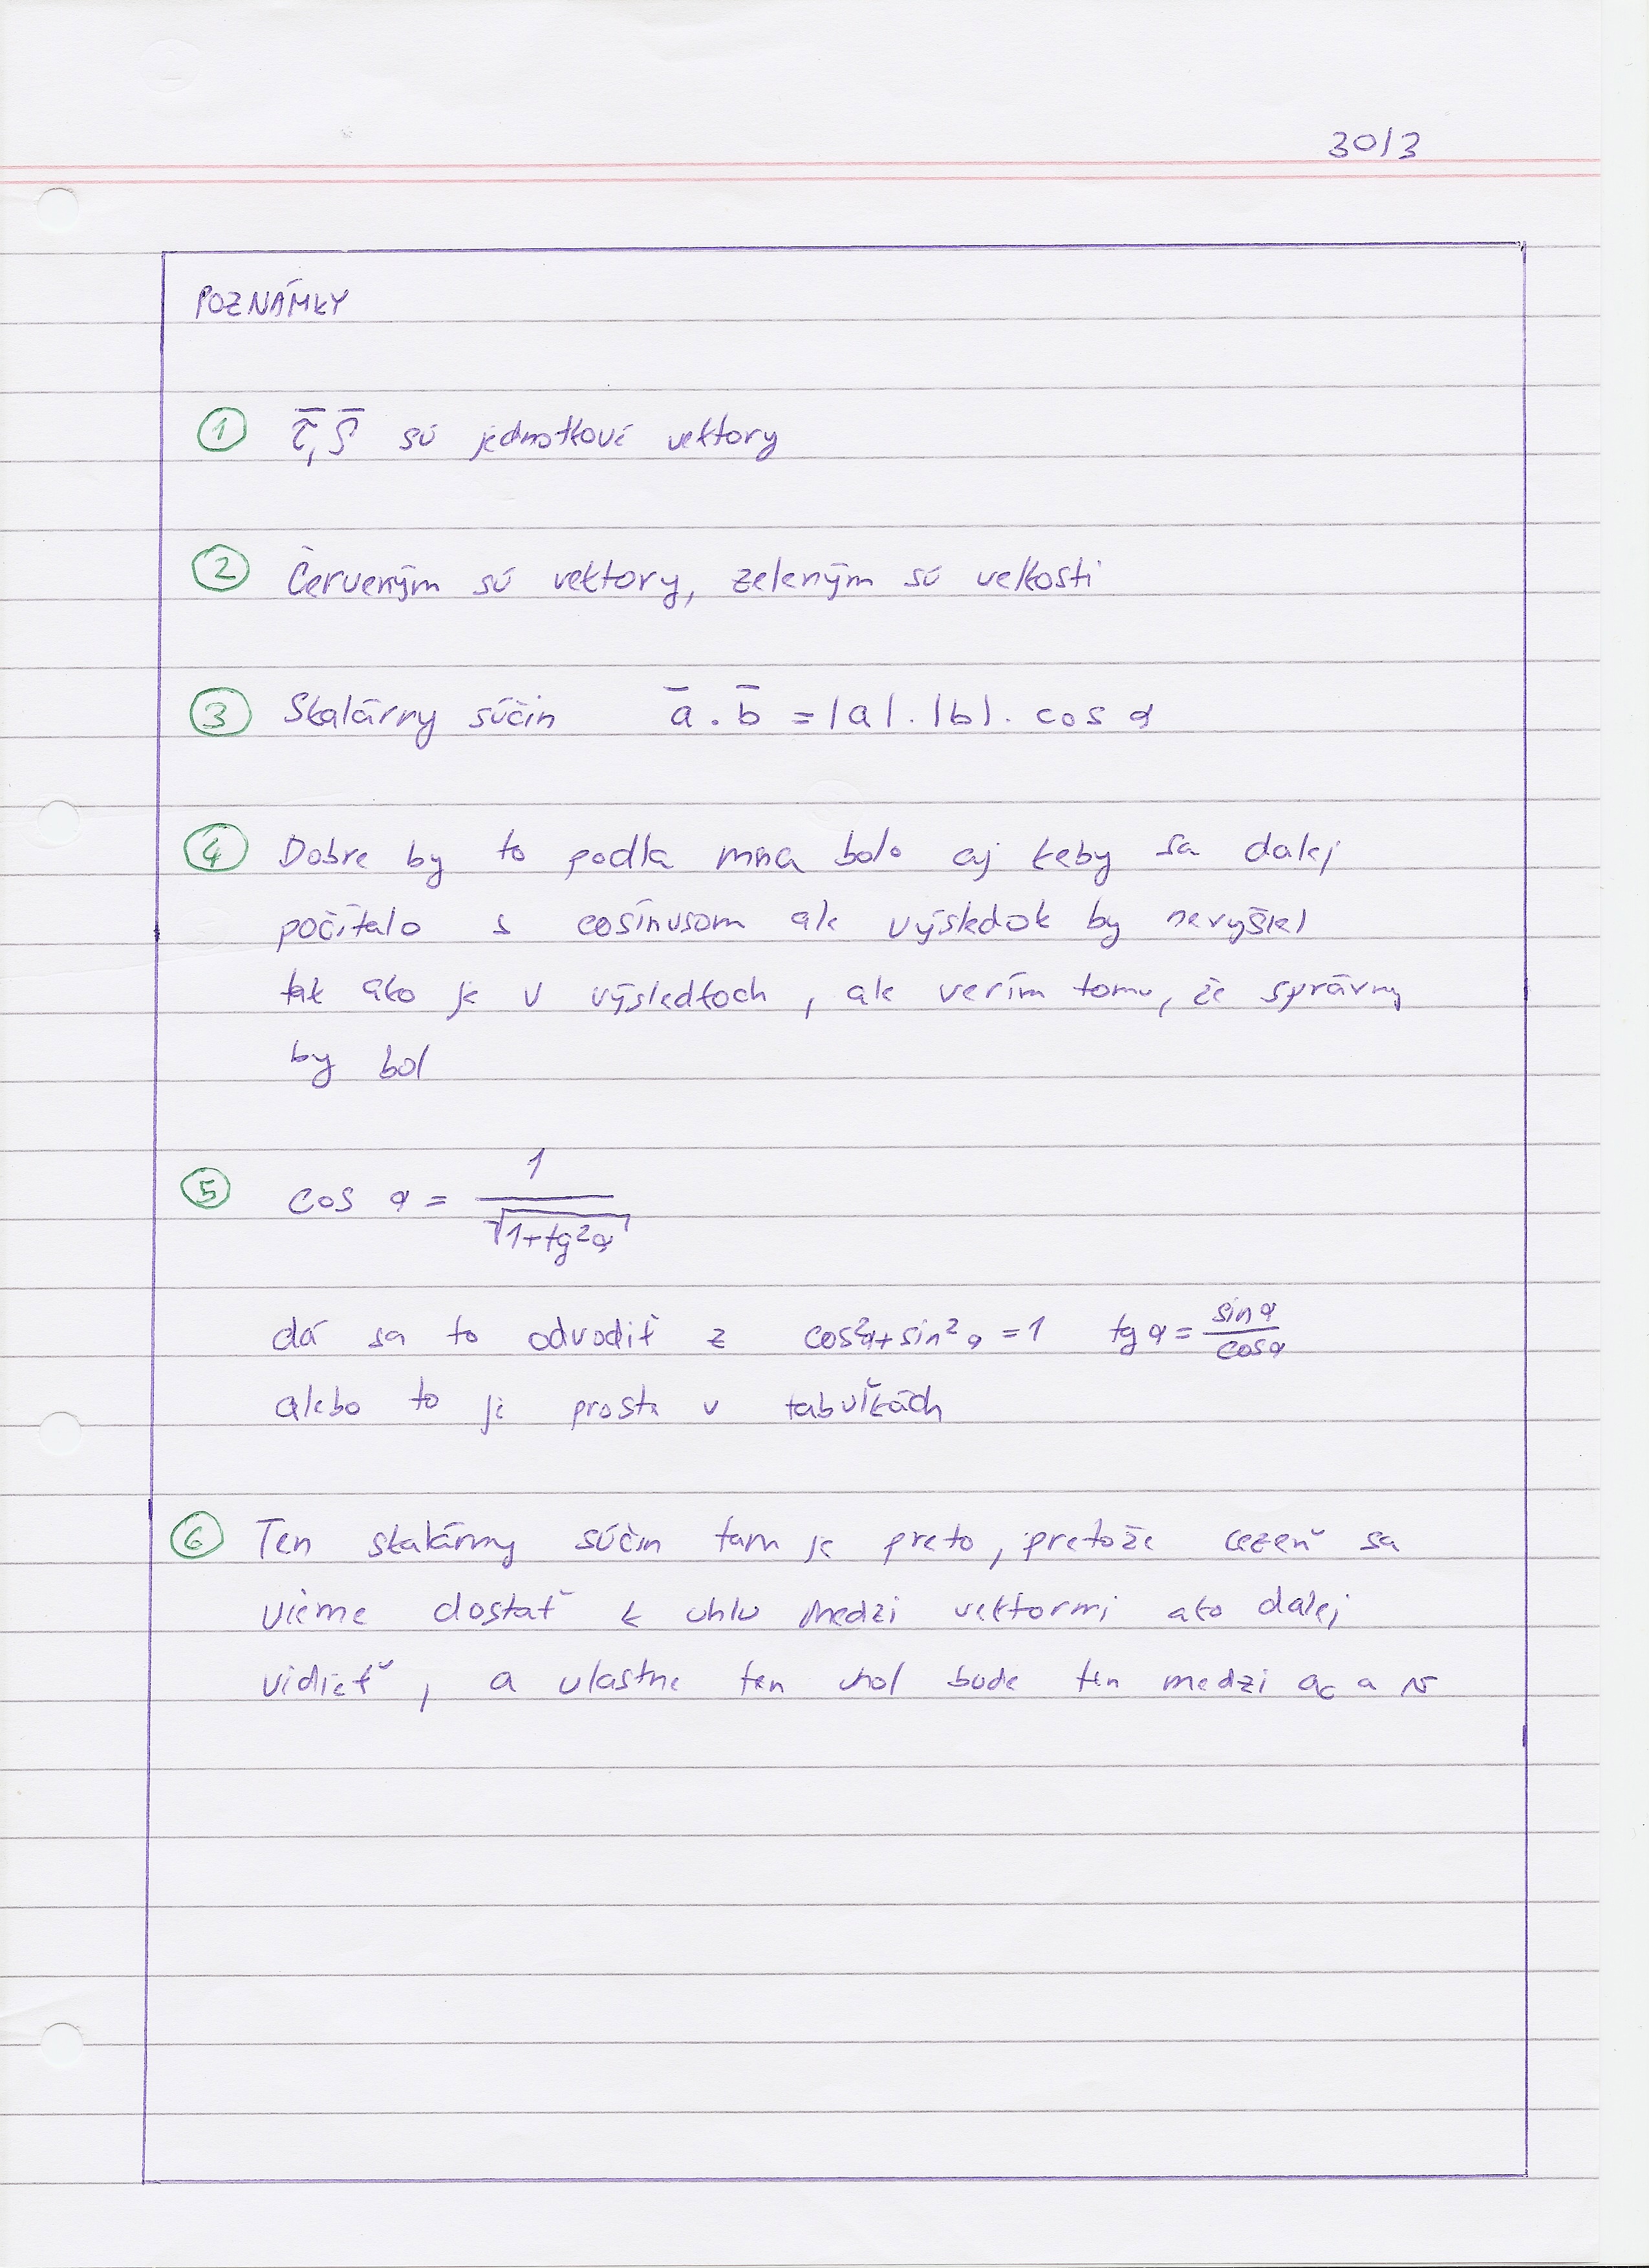 30/3
POZNÁMKY
1 τ̄, ρ̄ sú jednotkové vektory
2 Červeným sú vektory, zeleným sú velkosti
3 Skalárny súčin ā . b̄ = |a| . |b| . cos α
4 Dobre by to podla mna bolo aj keby sa dalej
počítalo s cosínusom ale výsledok by nevyšiel
tak ako je v výsledkoch, ale verím tomu, že správny
by bol
5 cos α = 1 / √(1+tg²α)
dá sa to odvodiť z cos²α+sin²α = 1 tg α = sin α / cos α
alebo to je proste v tabuľkách
6 Ten skalárny súčin tam je preto, pretože cezeň sa
vieme dostať k uhlu medzi vektormi ako dalej
vidieť, a vlastne ten uhol bude ten medzi a_c a v